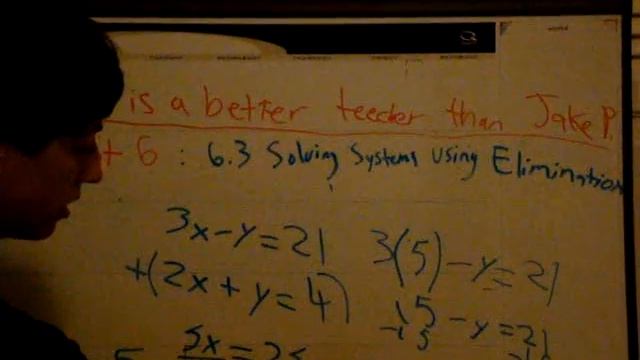 is a better teeder than Jake P.
+ 6 : 6.3 Solving Systems Using Elimination
3x-y=21
+(2x+y=4)
5x=25
3(5)-y=21
15-y=21
-15